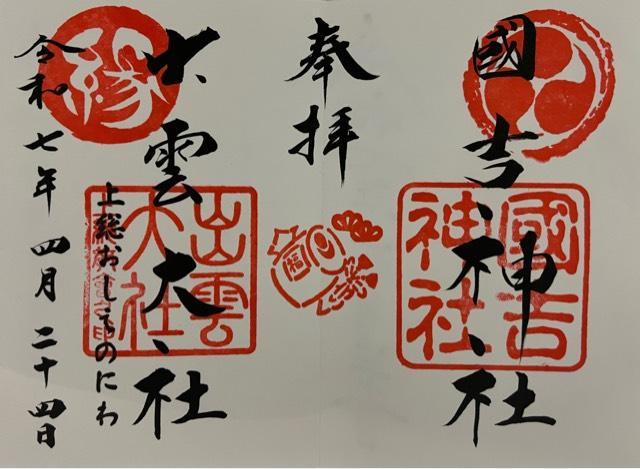 國吉神社
國吉神社
奉拝
出雲大社
出雲大社
縁
上総おしえのにわ
令和七年四月二十四日